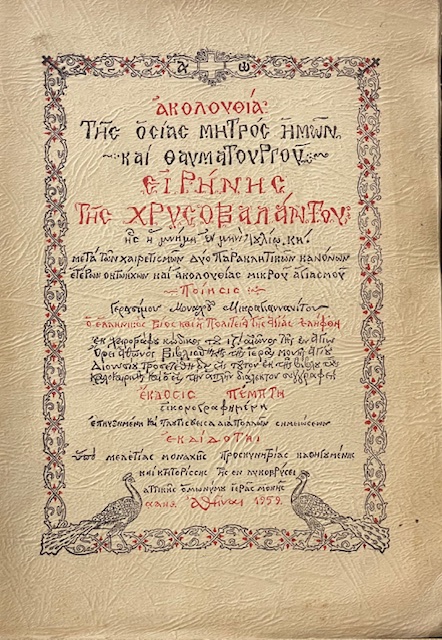 Α Ω
ἀκολουθία
Τῆς ὁσίας μητρός ἡμῶν
καί θαυματουργοῦ
εἰρήνης
τῆς χρυσοβαλάντου
ἧς ἡ μνήμη ἐν μηνί Ἰουλίῳ κη΄.
μετά τῶν χαιρετισμῶν δύο παρακλητικῶν κανόνων
ἑτέρων ὀκτωήχων καί ἀκολουθίας μικροῦ ἁγιασμοῦ
ποίησις
Γερασίμου Μοναχοῦ Μικραγιαννανίτου
ὁ ἑλληνικός βίος καί ἡ πολιτεία τῆς ἁγίας ἐλήφθη
ἐκ χειρογράφου κώδικος τοῦ αἰῶνος τῆς ἐν Ἁγίῳ
Ὄρει Ἄθωνος βιβλιοθήκης τῆς ἱερᾶς μονῆς Ἁγίου
Διονυσίου προσετέθη δέ εἰς τοῦτον ἐκ τῆς βίβλου τοῦ
καλοκαιρινή εἰς τήν ἁπλῆν διάλεκτον
ἔκδοσις πέμπτη
εἰκονογραφημένη
ἐπηυξημένη καί πλουτισθεῖσα διά πολλῶν σημειώσεων
ἐκδίδοται
ὑπό μελετίας μοναχῆς προσκυνητρίας καθηγουμένης
καί κτητορίσσης τῆς ἐν λυκοβρύσει
ἀττικῆς ὁμωνύμου ἱερᾶς μονῆς
ἀθῆναι 1959.